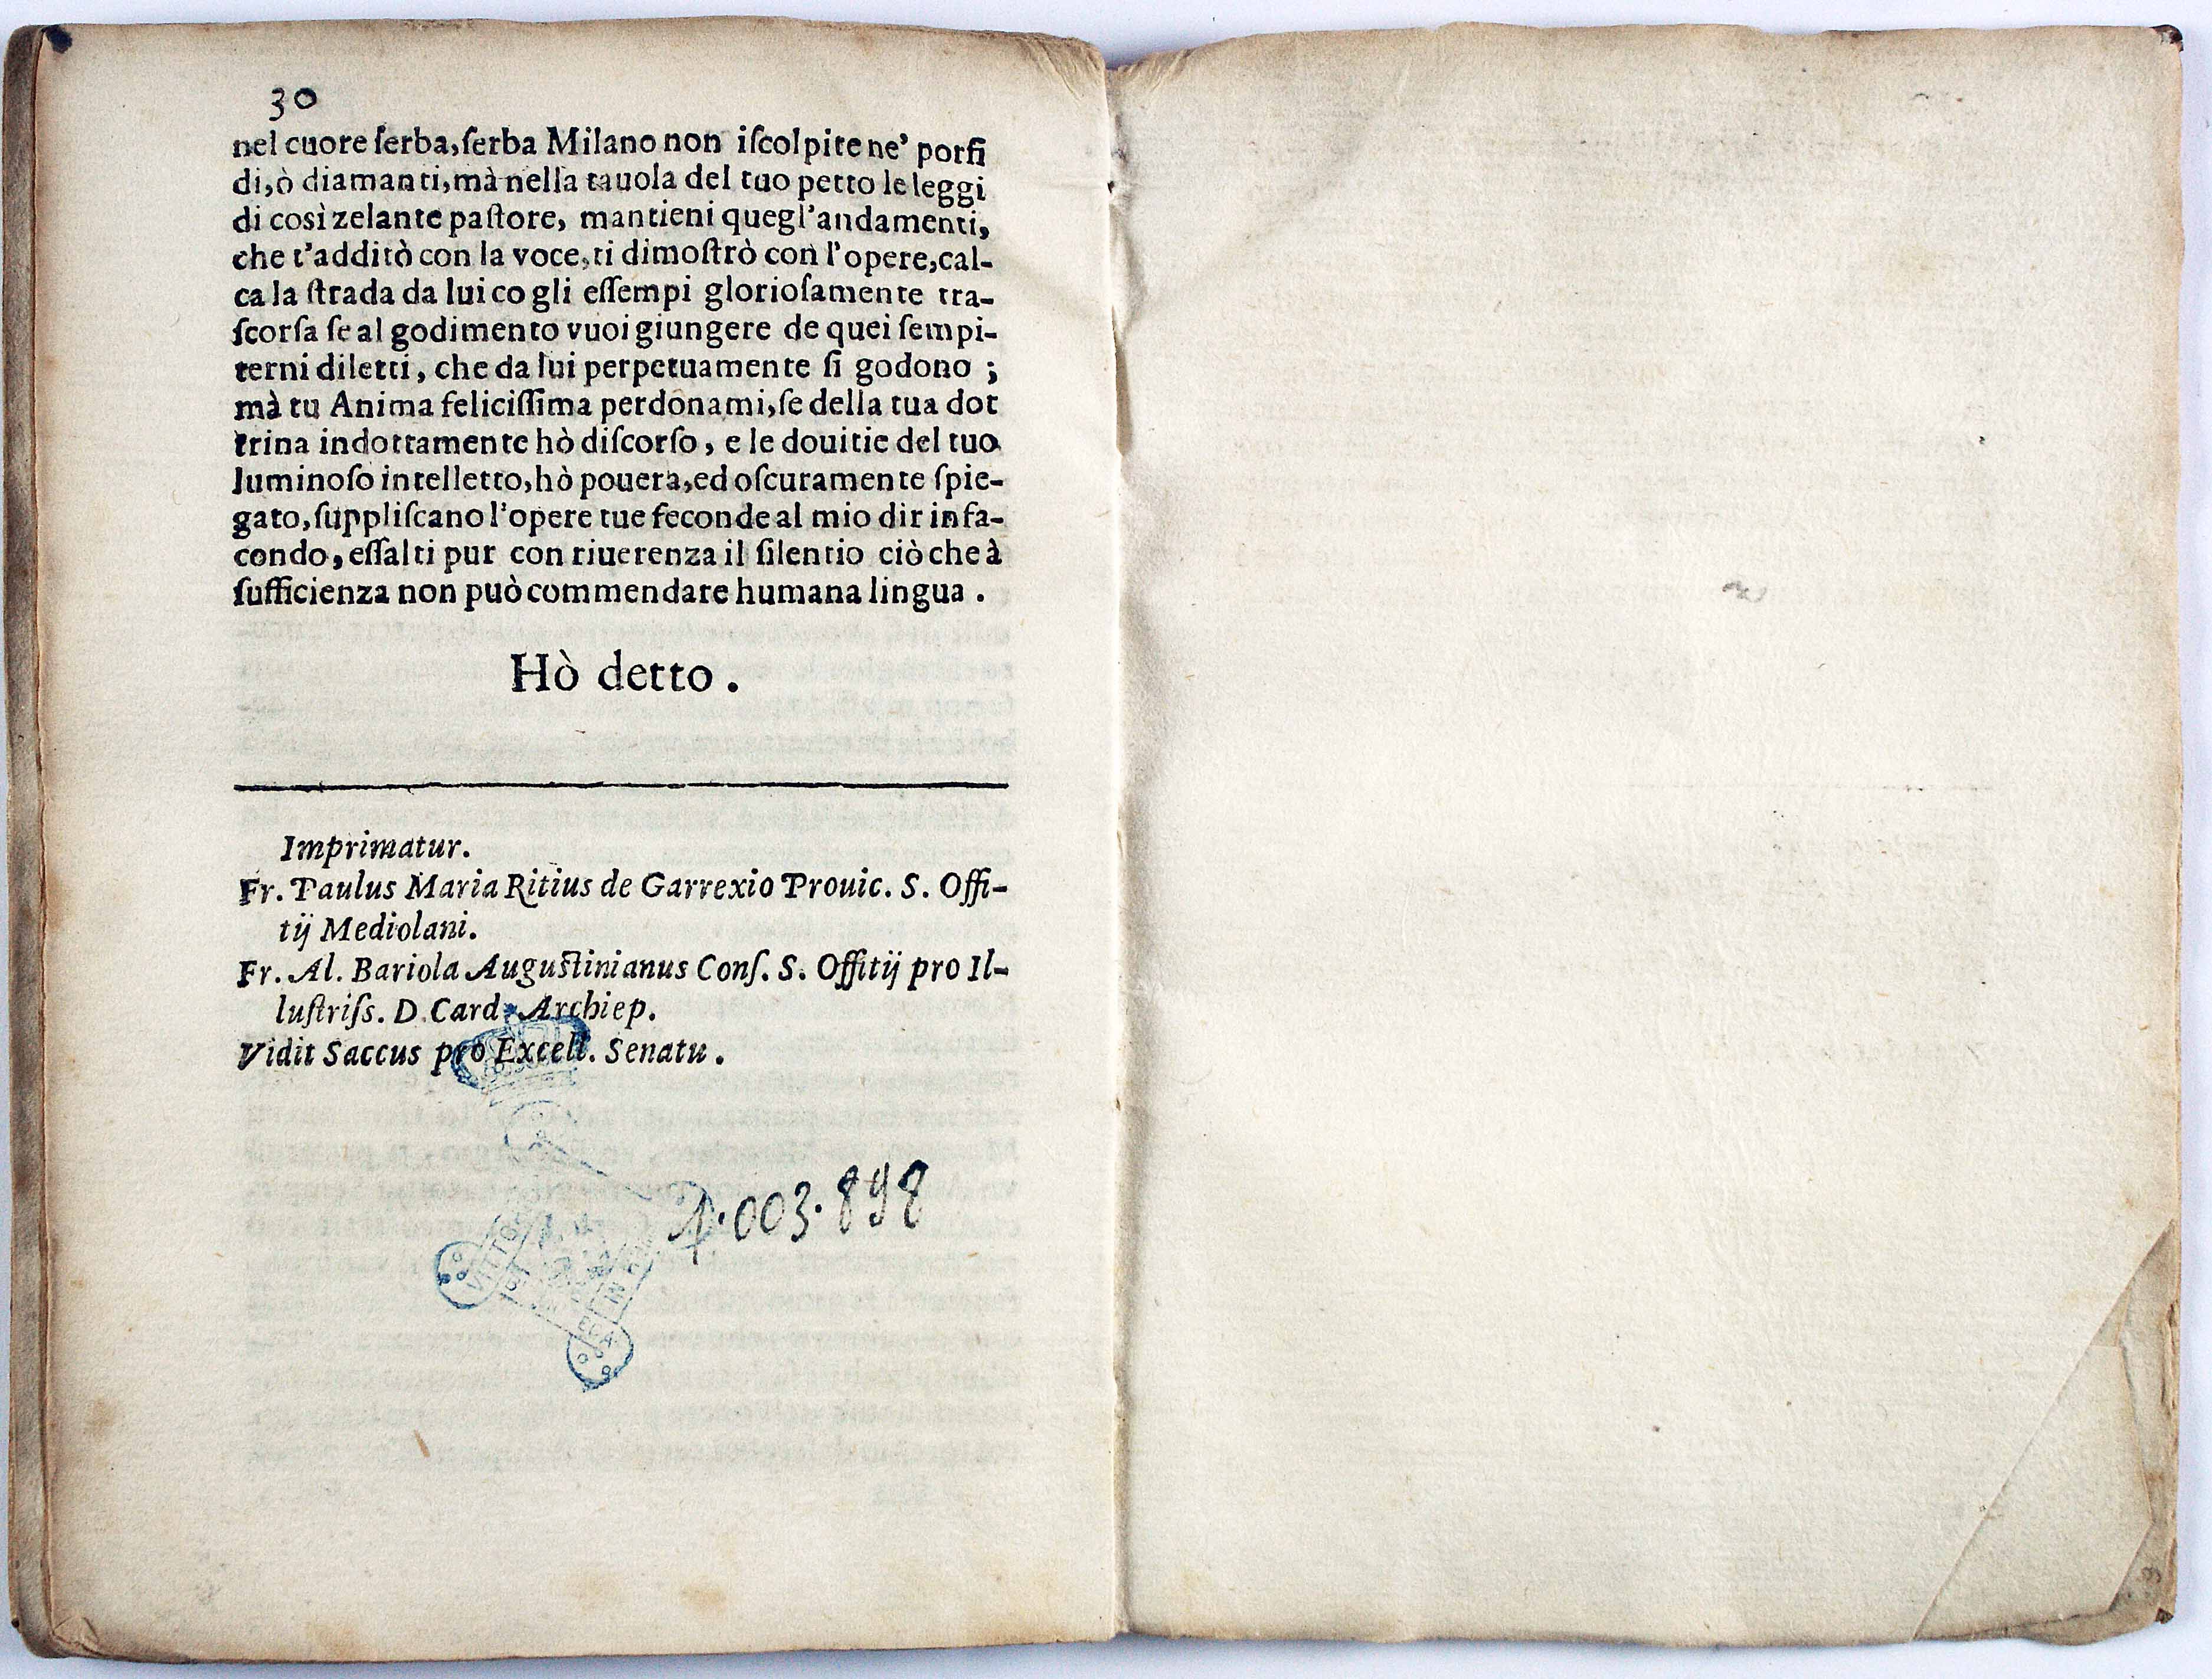 30
nel cuore ſerba, ſerba Milano non iſcolpite ne' porfi
di, ò diamanti, mà nella tauola del tuo petto le leggi
di così zelante paſtore, mantieni quegl'andamenti,
che t'additò con la voce, ti dimoſtrò con l'opere, cal-
ca la ſtrada da lui co gli eſſempi glorioſamente tra-
ſcorſa ſe al godimento vuoi giungere de quei ſempi-
terni diletti, che da lui perpetuamente ſi godono ;
mà tu Anima feliciſſima perdonami, ſe della tua dot
trina indottamente hò diſcorſo, e le douitie del tuo
luminoſo intelletto, hò pouera, ed oſcuramente ſpie-
gato, ſuppliſcano l'opere tue feconde al mio dir infa-
condo, eſſalti pur con riuerenza il ſilentio ciò che à
ſufficienza non può commendare humana lingua .
Hò detto .
Imprimatur.
Fr. Paulus Maria Ritius de Garrexio Prouic. S. Offi-
tij Mediolani.
Fr. Al. Bariola Auguſtinianus Conſ. S. Offitij pro Il-
luſtriſs. D. Card. Archiep.
Vidit Saccus pro Excell. Senatu .
1.003.898